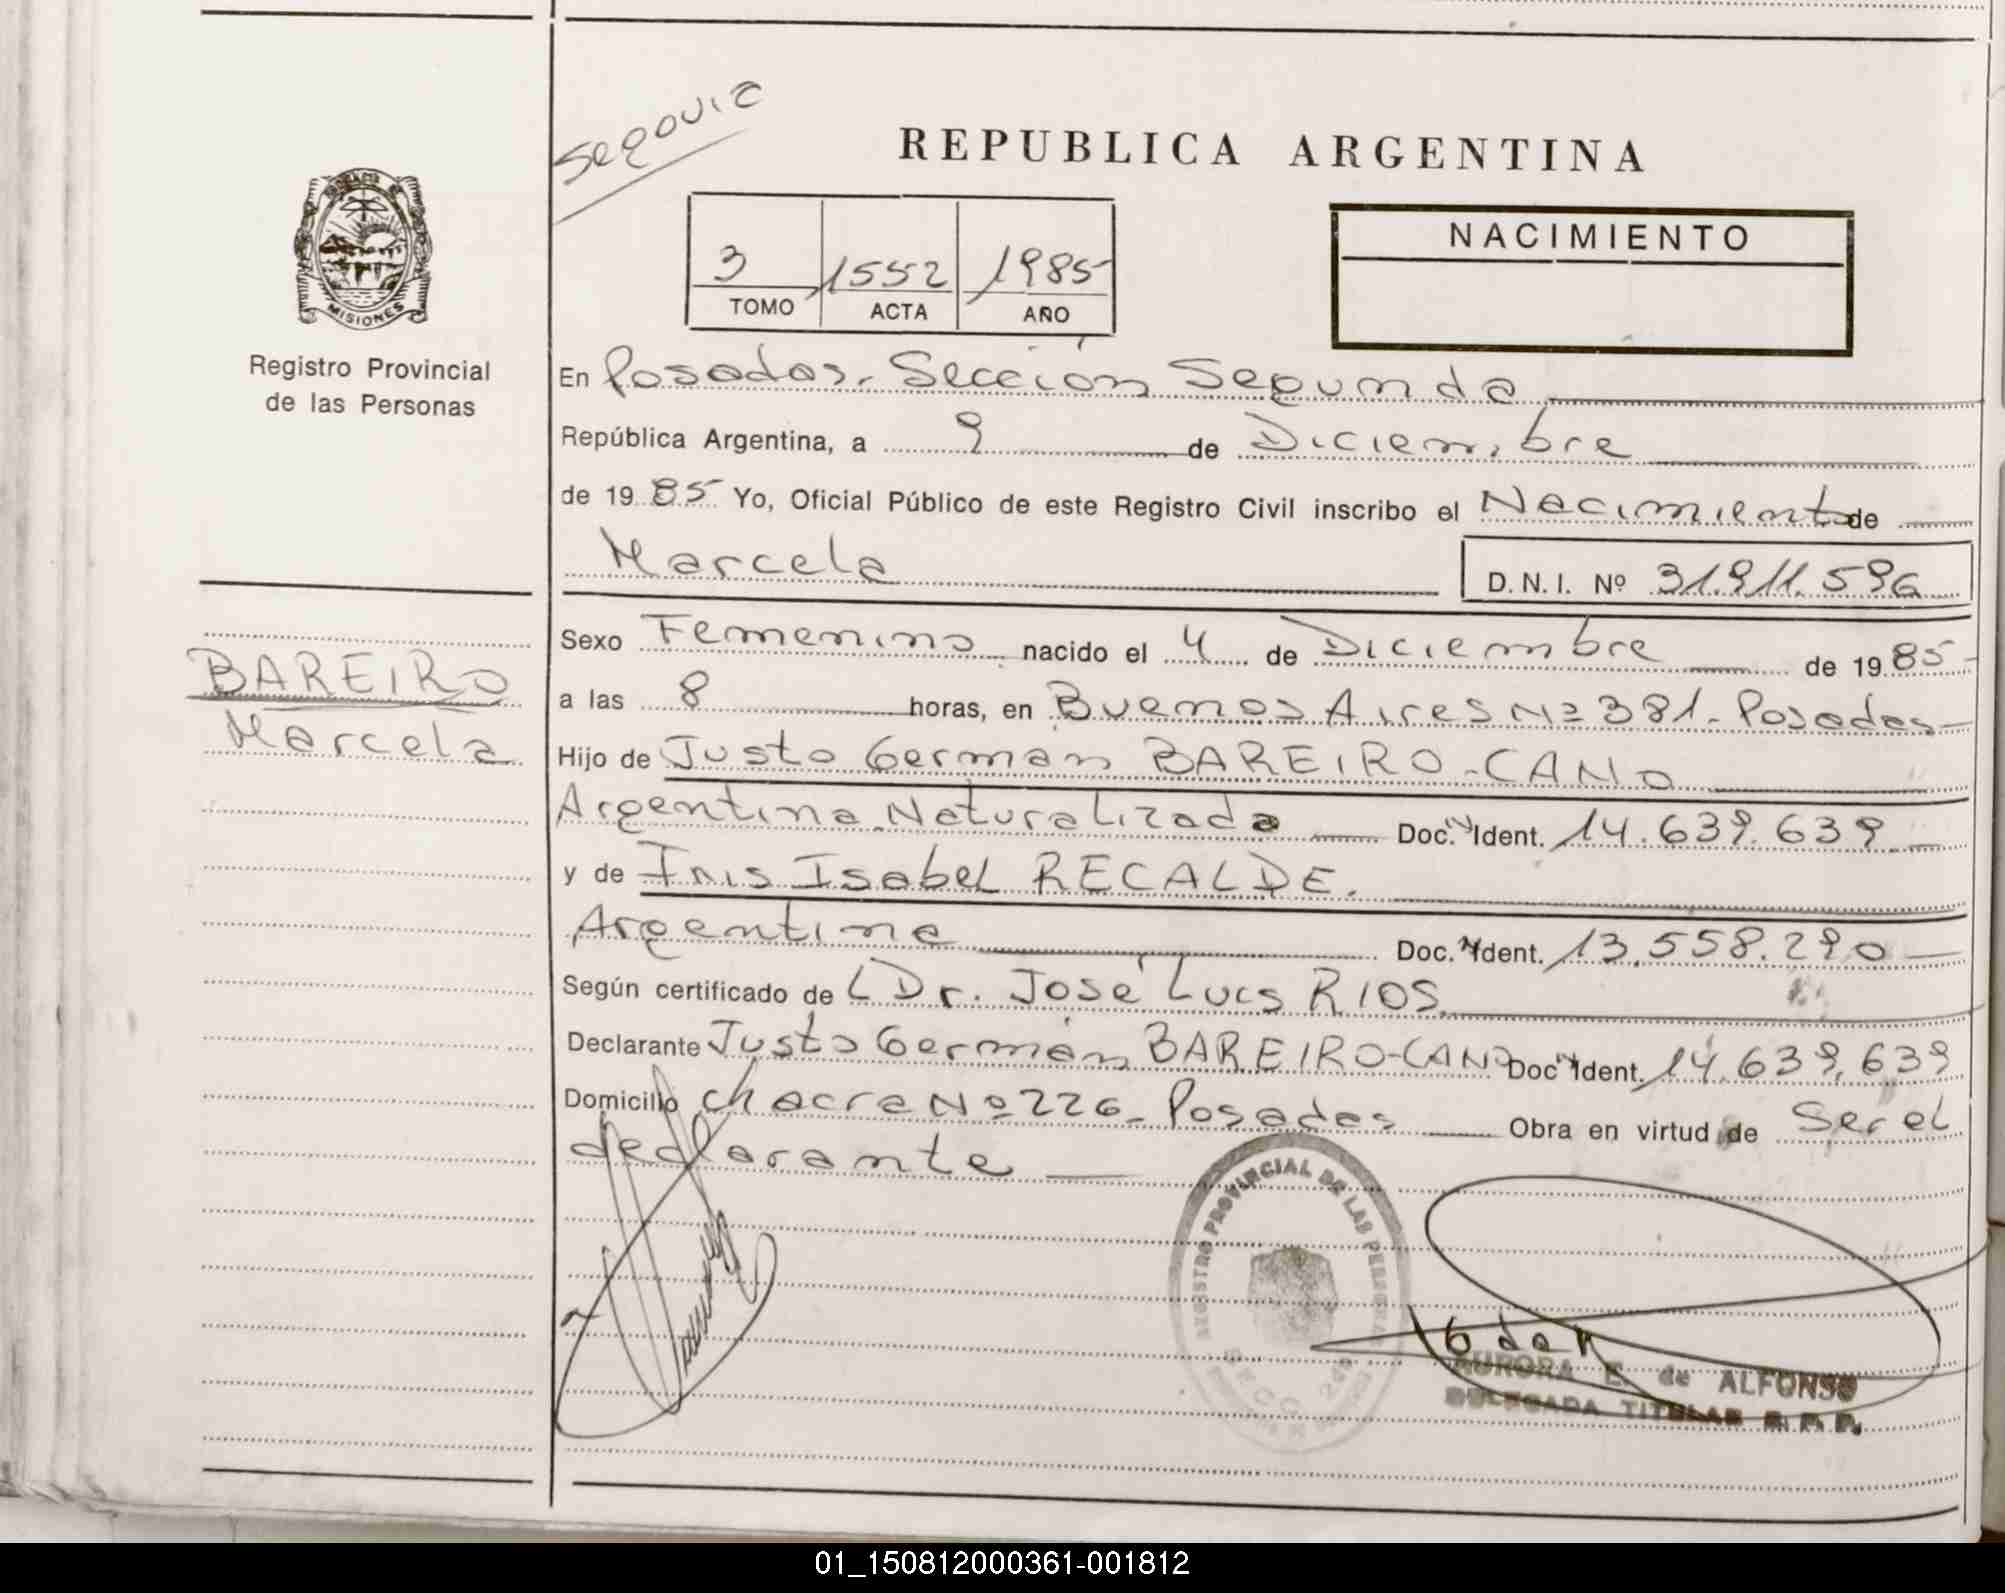 Segovia
REPUBLICA ARGENTINA
MISIONES
Registro Provincial
de las Personas
3 1552 1985
TOMO ACTA AÑO
NACIMIENTO
En Posadas. Sección Segunda
República Argentina, a 9 de Diciembre
de 1985 Yo, Oficial Público de este Registro Civil inscribo el Nacimiento de
Marcela D.N.I. Nº 31.911.596
BAREIRO
Marcela
Sexo Femenino nacido el 4 de Diciembre de 1985
a las 8 horas, en Buenos Aires Nº 381 - Posadas
Hijo de Justo German BAREIRO-CANO
Argentina Naturalizada Doc. N Ident. 14.639.639
y de Inis Isabel RECALDE.
Argentina Doc. N Ident. 13.558.290
Según certificado de Dr. José Luis RIOS
Declarante Justo Germán BAREIRO-CANO Doc N Ident. 14.639.639
Domicilio chacra Nº 226 - Posadas Obra en virtud de Ser el
declarante
REGISTRO PROVINCIAL DE LAS PERSONAS
SECC. 2da
AURORA E. de ALFONSO
DELEGADA TITULAR R. P. P.
01_150812000361-001812